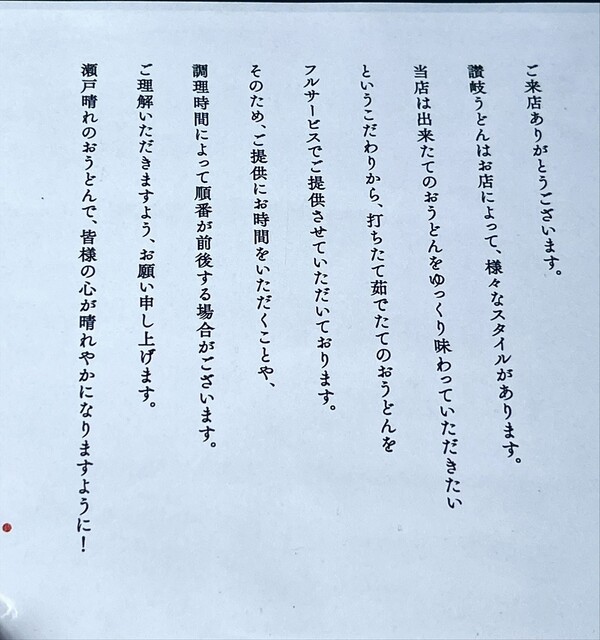 ご来店ありがとうございます。
讃岐うどんはお店によって、様々なスタイルがあります。
当店は出来たてのおうどんをゆっくり味わっていただきたい
というこだわりから、打ちたて茹でたてのおうどんを
フルサービスでご提供させていただいております。
そのため、ご提供にお時間をいただくことや、
調理時間によって順番が前後する場合がございます。
ご理解いただきますよう、お願い申し上げます。
瀬戸晴れのおうどんで、皆様の心が晴れやかになりますように！